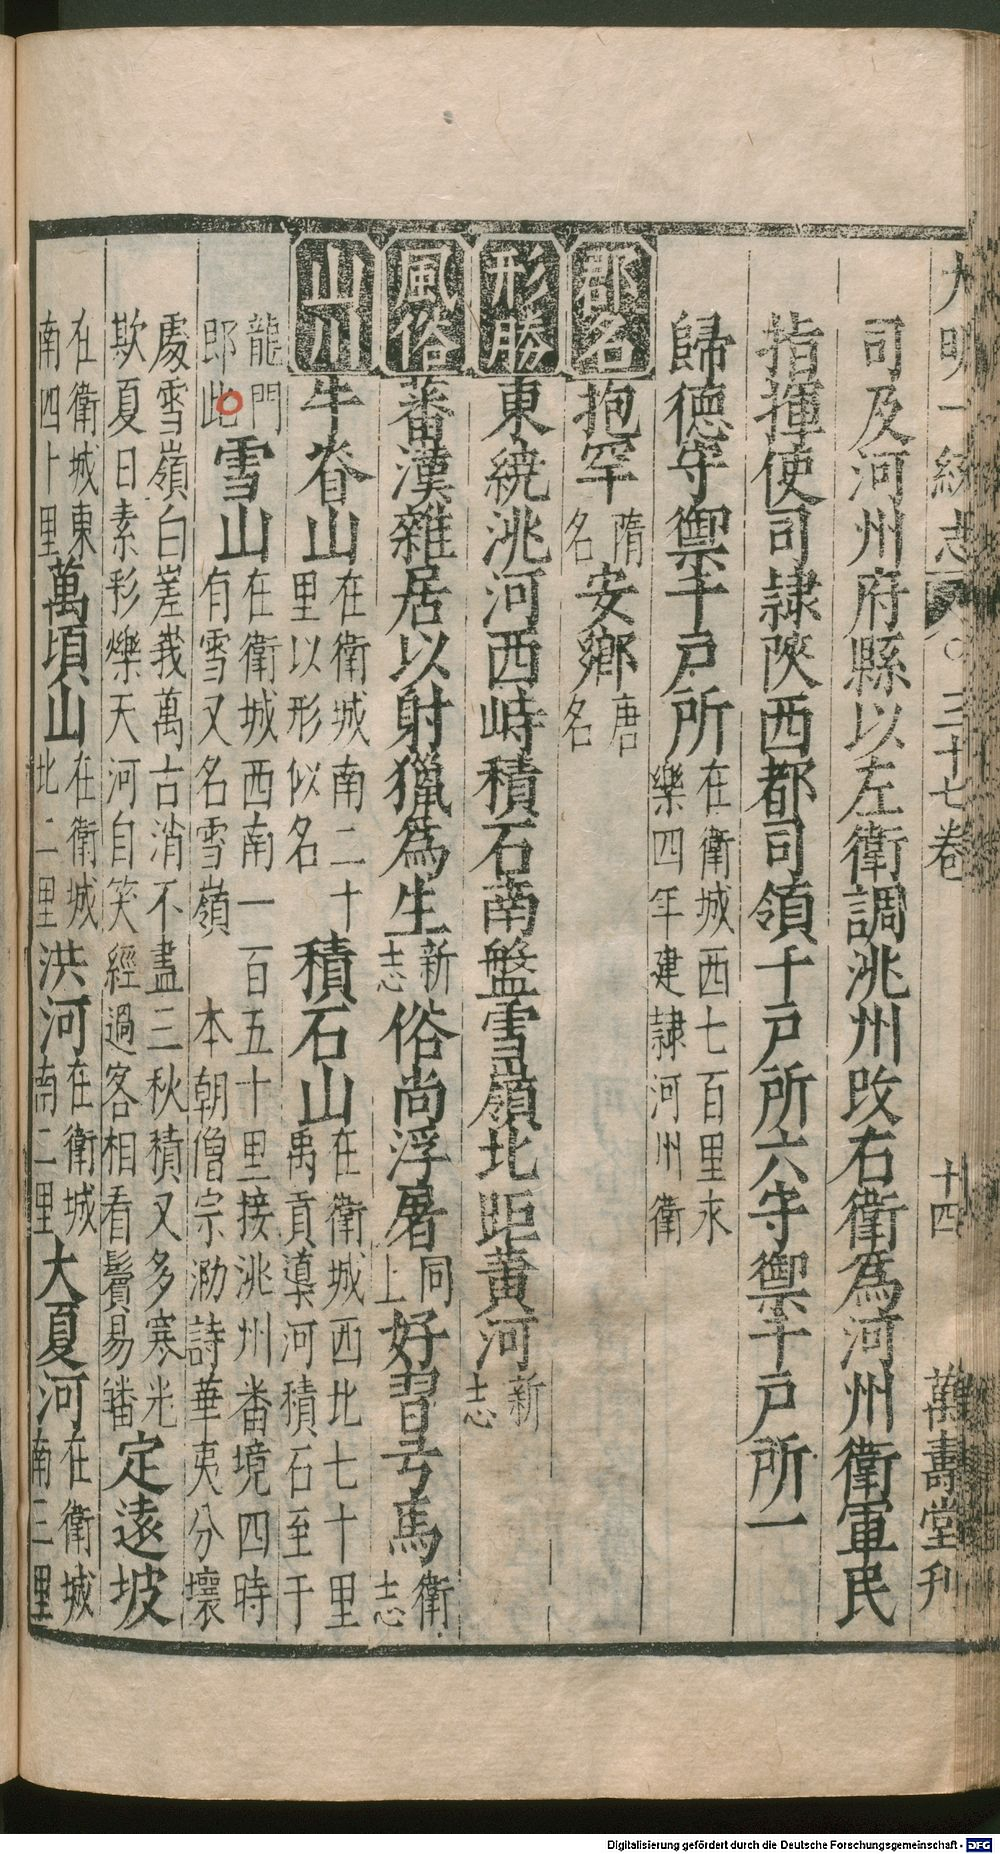 大明一統志 三十七卷 十四 萬壽堂刊
司及河州府縣以左衛調洮州改右衛為河州衛軍民
指揮使司隷陝西都司領千戸所六守禦千戸所一
歸德守禦千戸所在衛城西七百里永樂四年建隷河州衛
郡名 抱罕隋名安鄉唐名
形勝 東繞洮河西峙積石南盤雪嶺北距黃河新志
風俗 蕃漢雜居以射獵為生新志俗尚浮屠同上好習弓馬衛志
山川 牛脊山在衛城南二十里以形似名積石山在衛城西北七十里禹貢導河積石至于
龍門即此雪山在衛城西南一百五十里接洮州番境四時有雪又名雪嶺 本朝僧宗泐詩華夷分壤
處雪嶺白差峩萬古消不盡三秋積又多寒光欺夏日素彩爍天河自笑經過客相看鬢易皤定遠坡
在衛城東南四十里萬頃山在衛城北二里洪河在衛城南二里大夏河在衛城南三里
Digitalisierung gefördert durch die Deutsche Forschungsgemeinschaft - DFG